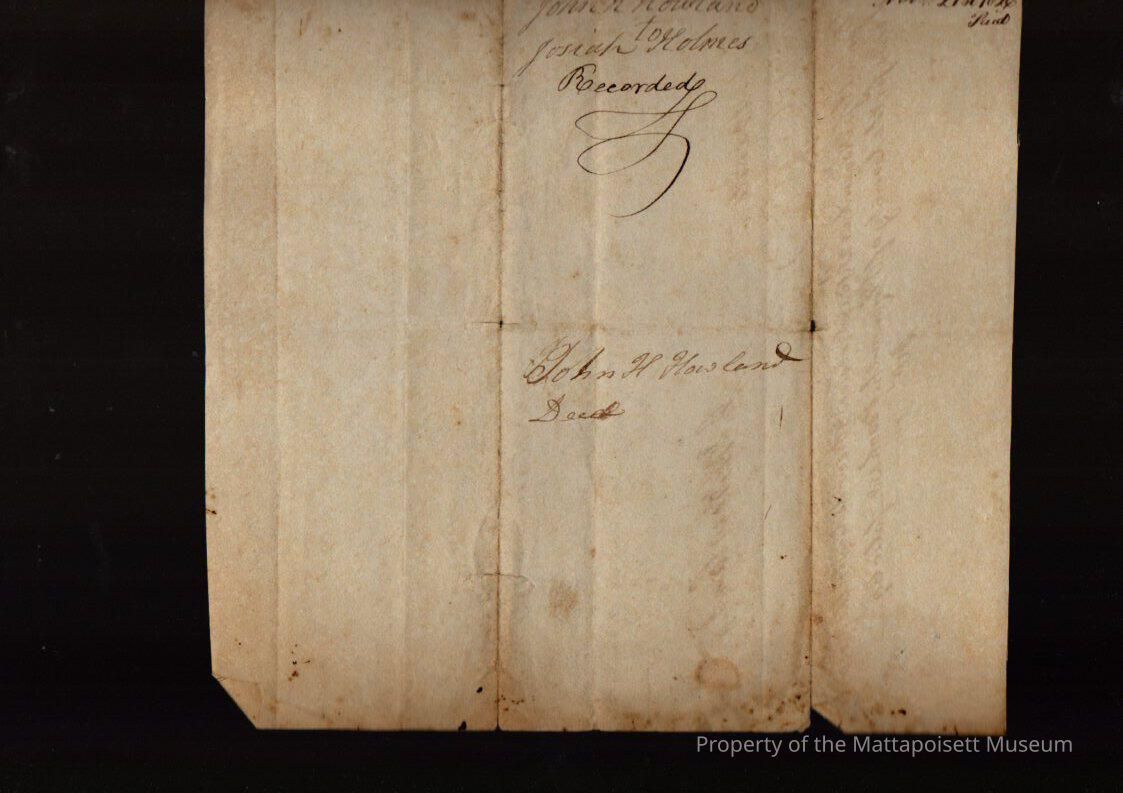 John H Howland
to
Josiah Holmes
Recorded
John H Howland
Deed
Property of the Mattapoisett Museum